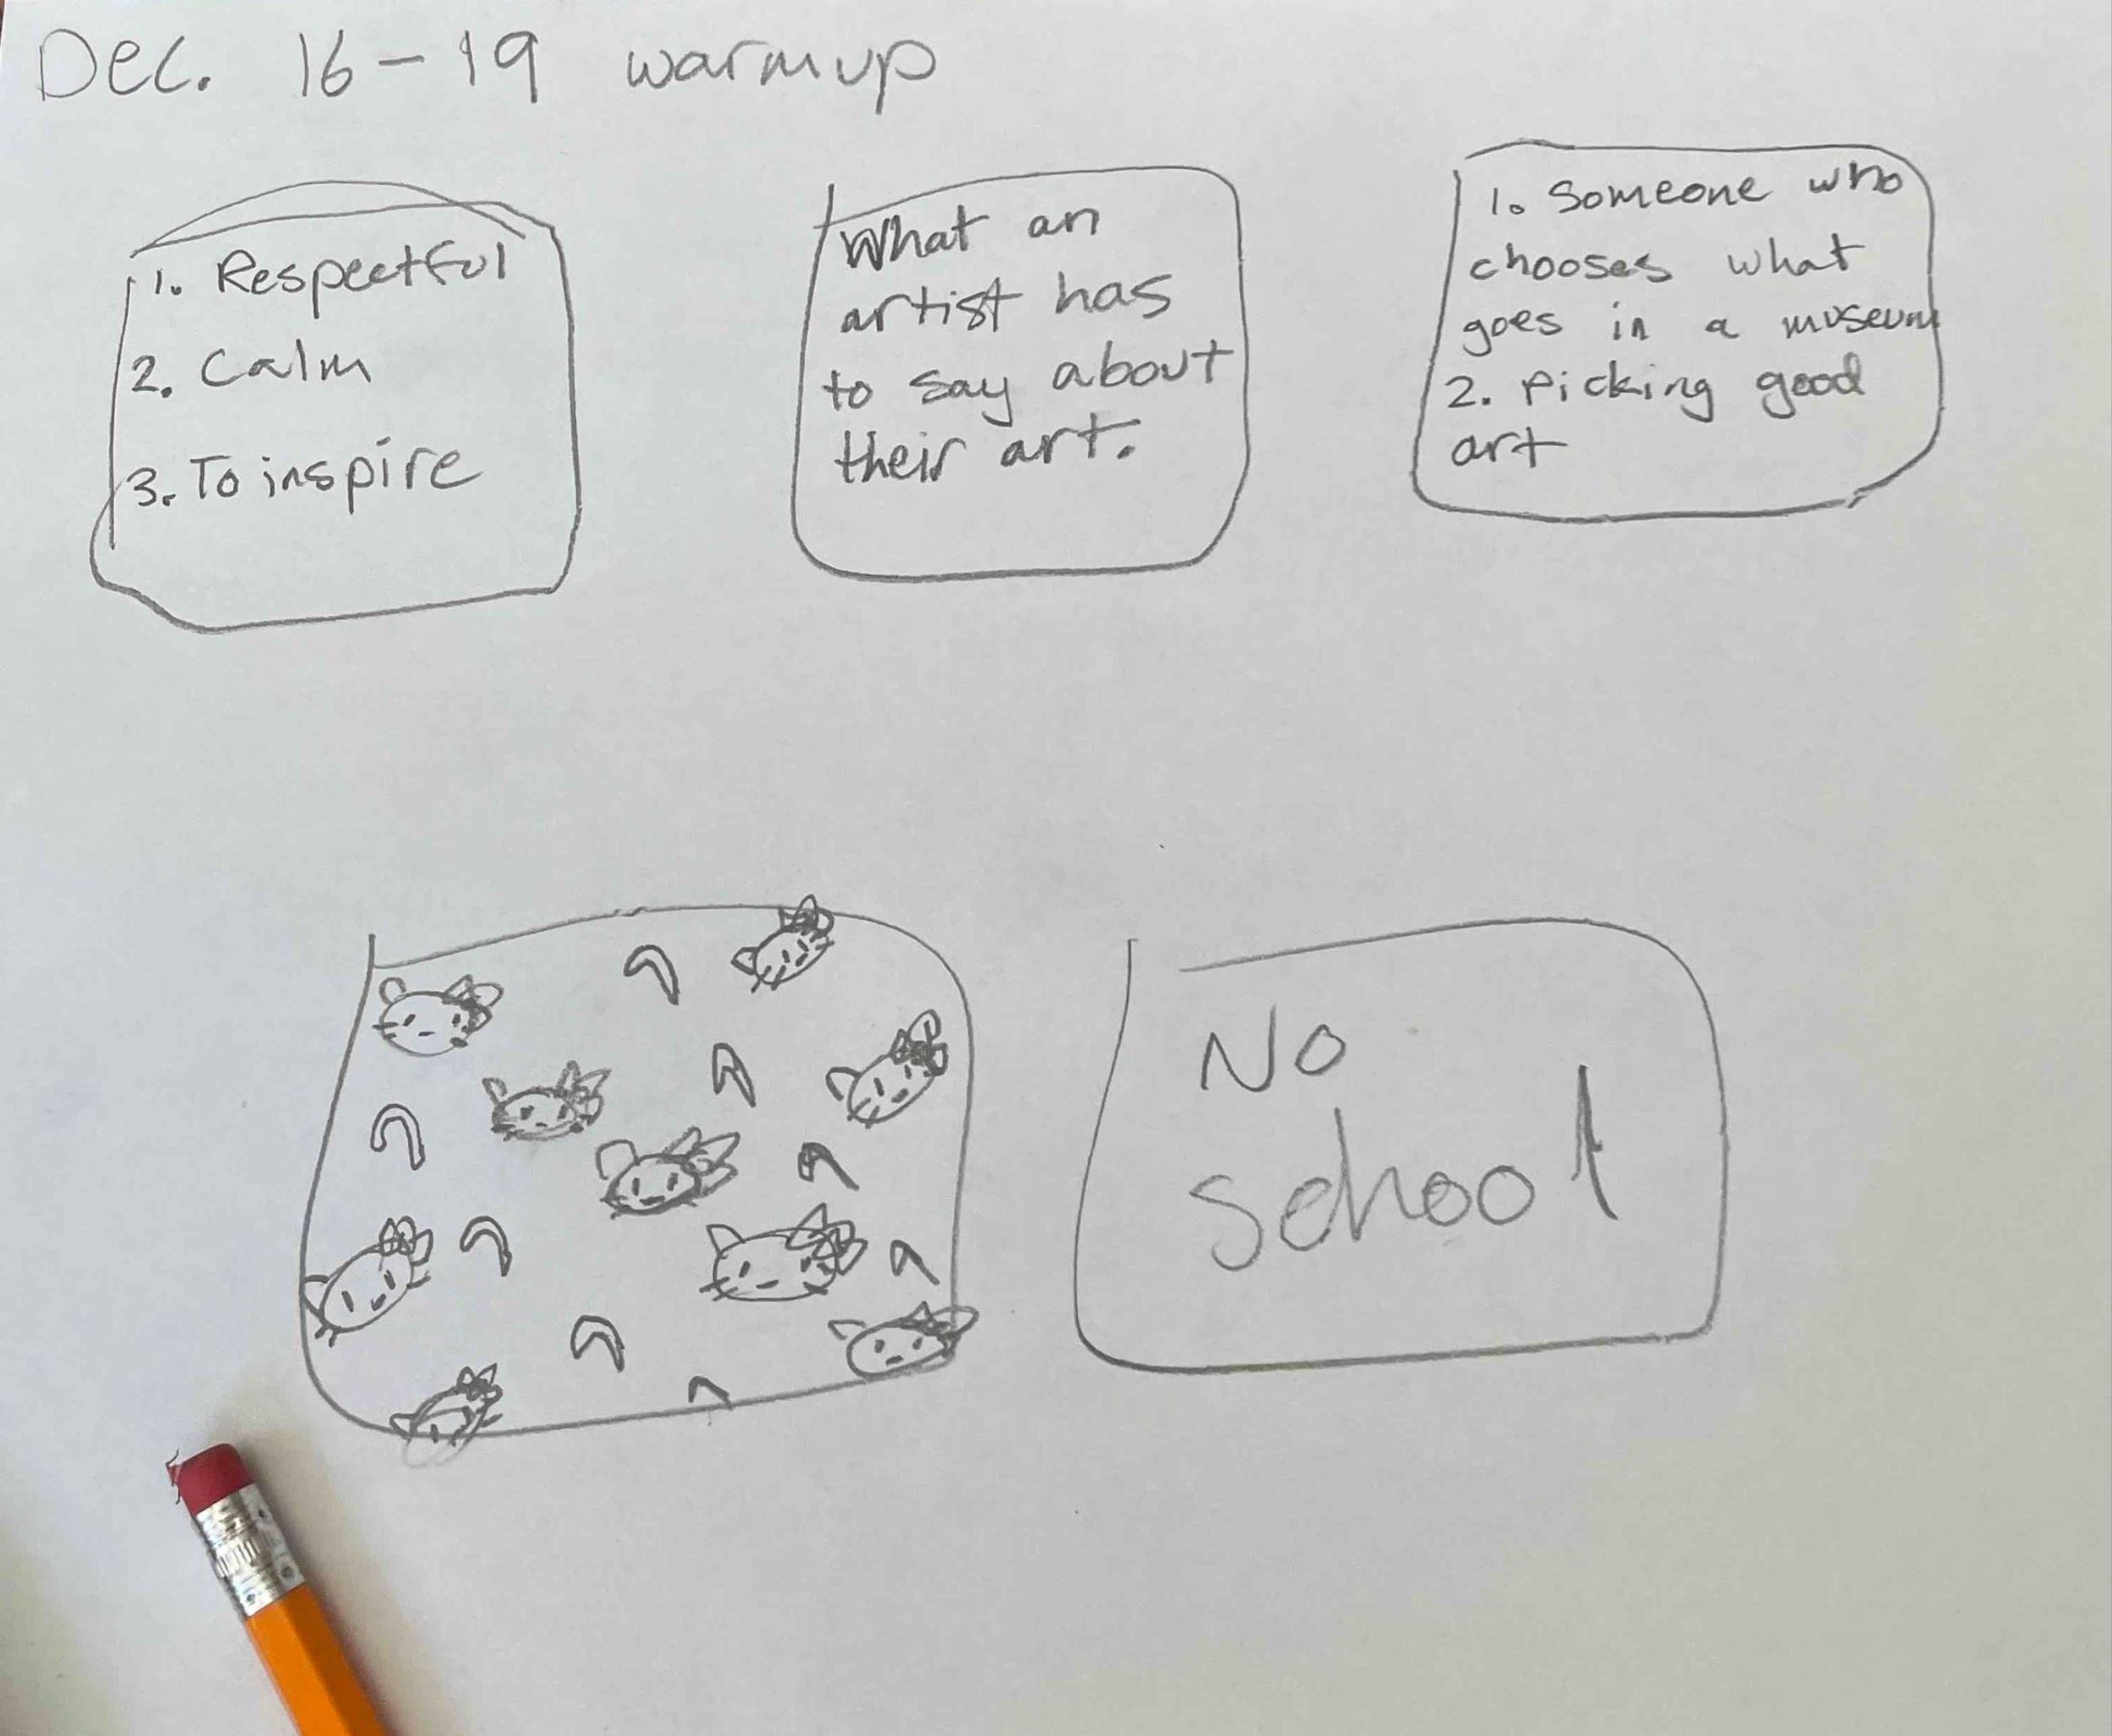 Dec. 16-19 warmup
1. Respectful
2. Calm
3. To inspire
What an
artist has
to say about
their art.
1. Someone who
chooses what
goes in a museum
2. Picking good
art
No
school